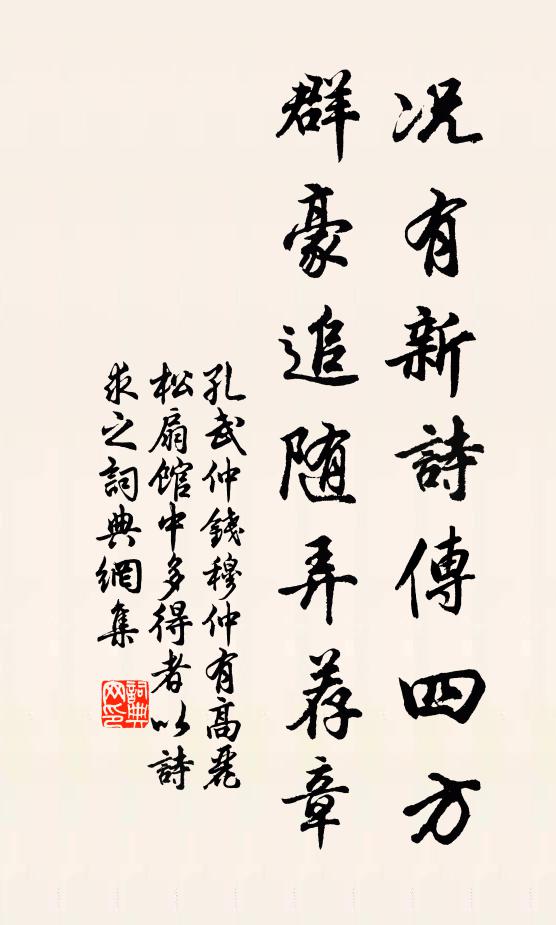 况有新詩傳四方
群豪追随弄荐章
孔武仲錢穆仲有高麗
松扇馆中多得者以詩
求之詞典網集
詞典
网印